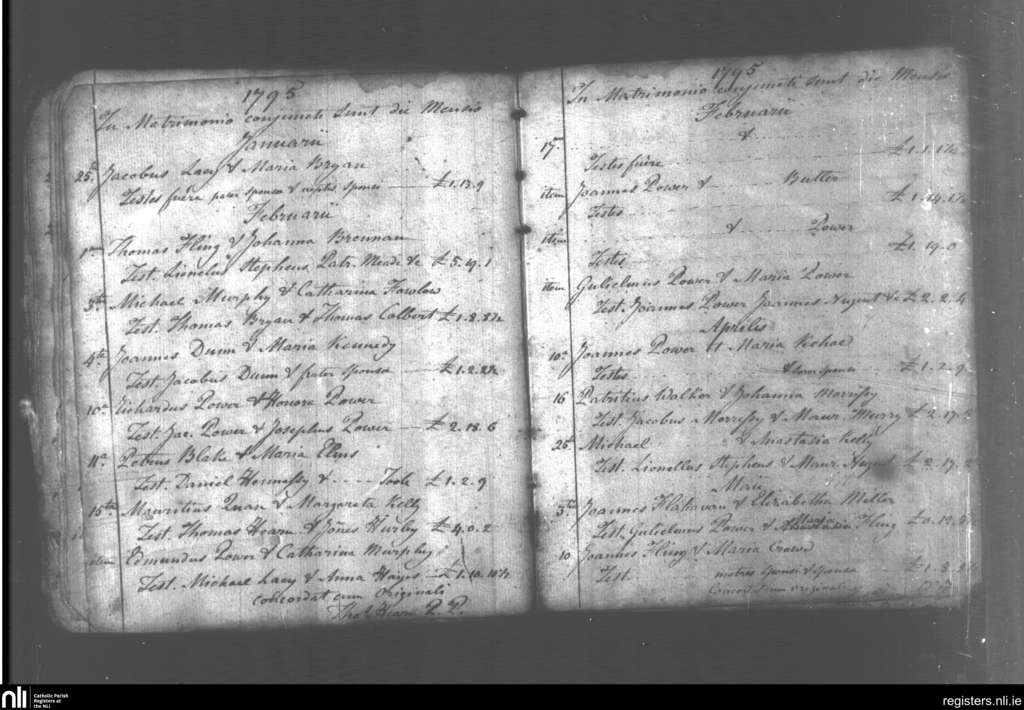 1795
In Matrimonio conjuncti sunt die Mensis
Januarii
25 Jacobus Lacy & Maria Bryan
Testes fuere pater sponsa & sponsi £1.13.9
Februarii
1 Thomas Hling & Johanna Brennan
Test. Lionelus Stephens Patr. Meade &c £5.19.1
3 Michael Murphy & Catharina Fowlow
Test. Thomas Bryan & Thomas Colbert £1.8.8½
4th Joannes Dunn & Maria Kennedy
Test. Jacobus Dunn & frater sponsa £1.2.2½
10 Richardus Power & Honora Power
Test. Jac. Power & Josephus Power £2.18.6
11 Robertus Blake & Maria Elms
Test. Daniel Hennessy & ---- Toole £1.2.9
15th Mauritius Quan & Margareta Kelly
Test. Thomas Hearn & Jones Hurley £4.0.2
item Edmundus Power & Catharina Murphy
Test. Michael Lacy & Anna Hayes £1.10.10½
concordat cum Originali
Thos Hearn P. P.
1795
In Matrimonio conjuncti sunt die Mensis
Februarii
17 &
Testes fuere £1.1.1½
item Joannes Power & Butler
Testes £1.14.1½
item & Power
Testes £1.19.0
item Gulielmus Power & Maria Power
Test. Joannes Power Joannes Nugent &c £2.2.4
Aprilis
10 Joannes Power et Maria Kehoe
Testes sponsi £1.2.9
16 Patritius Walker & Johanna Morrissy
Test. Jacobus Morrissy & Maur. Murry £2.17.
26 Michael & Anastasia Kelly
Test. Lionellus Stephens & Maur. Nugent £2.17.
Maii
5 Joannes Flahavan & Elizabetha Miller
Test. Gulielmus Power & Anastasia Hling £0.12.
10 Joannes Hling & Maria Crowe
Test. matres sponsi & sponsa £1.8.
concordat cum originali
nli
Catholic Parish
Registers at
the NLI
registers.nli.ie